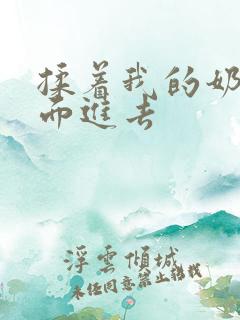 揉着我的奶
而进去
浮云倾城
未经同意禁止转载